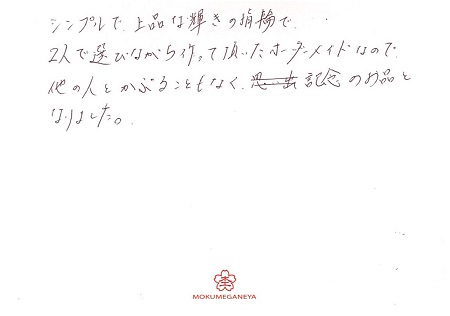 シンプルで上品な輝きの指輪で、
2人で選びながら作って頂いたオーダーメイドなので
他の人とかぶることもなく、記念のお品と
なりました。
MOKUMEGANEYA